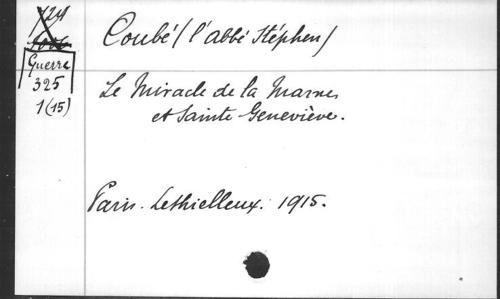 724
Guerre
325
1(15)
Coubé (l'abbé Stéphen)
Le Miracle de la Marne
et Sainte Geneviève.
Paris. Lethielleux. 1915.